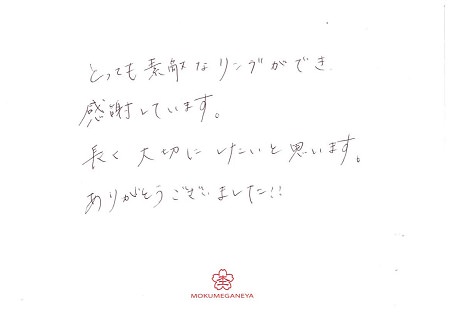 とっても素敵なリングができ
感謝しています。
長く大切にしたいと思います。
ありがとうございました!!
MOKUMEGANEYA